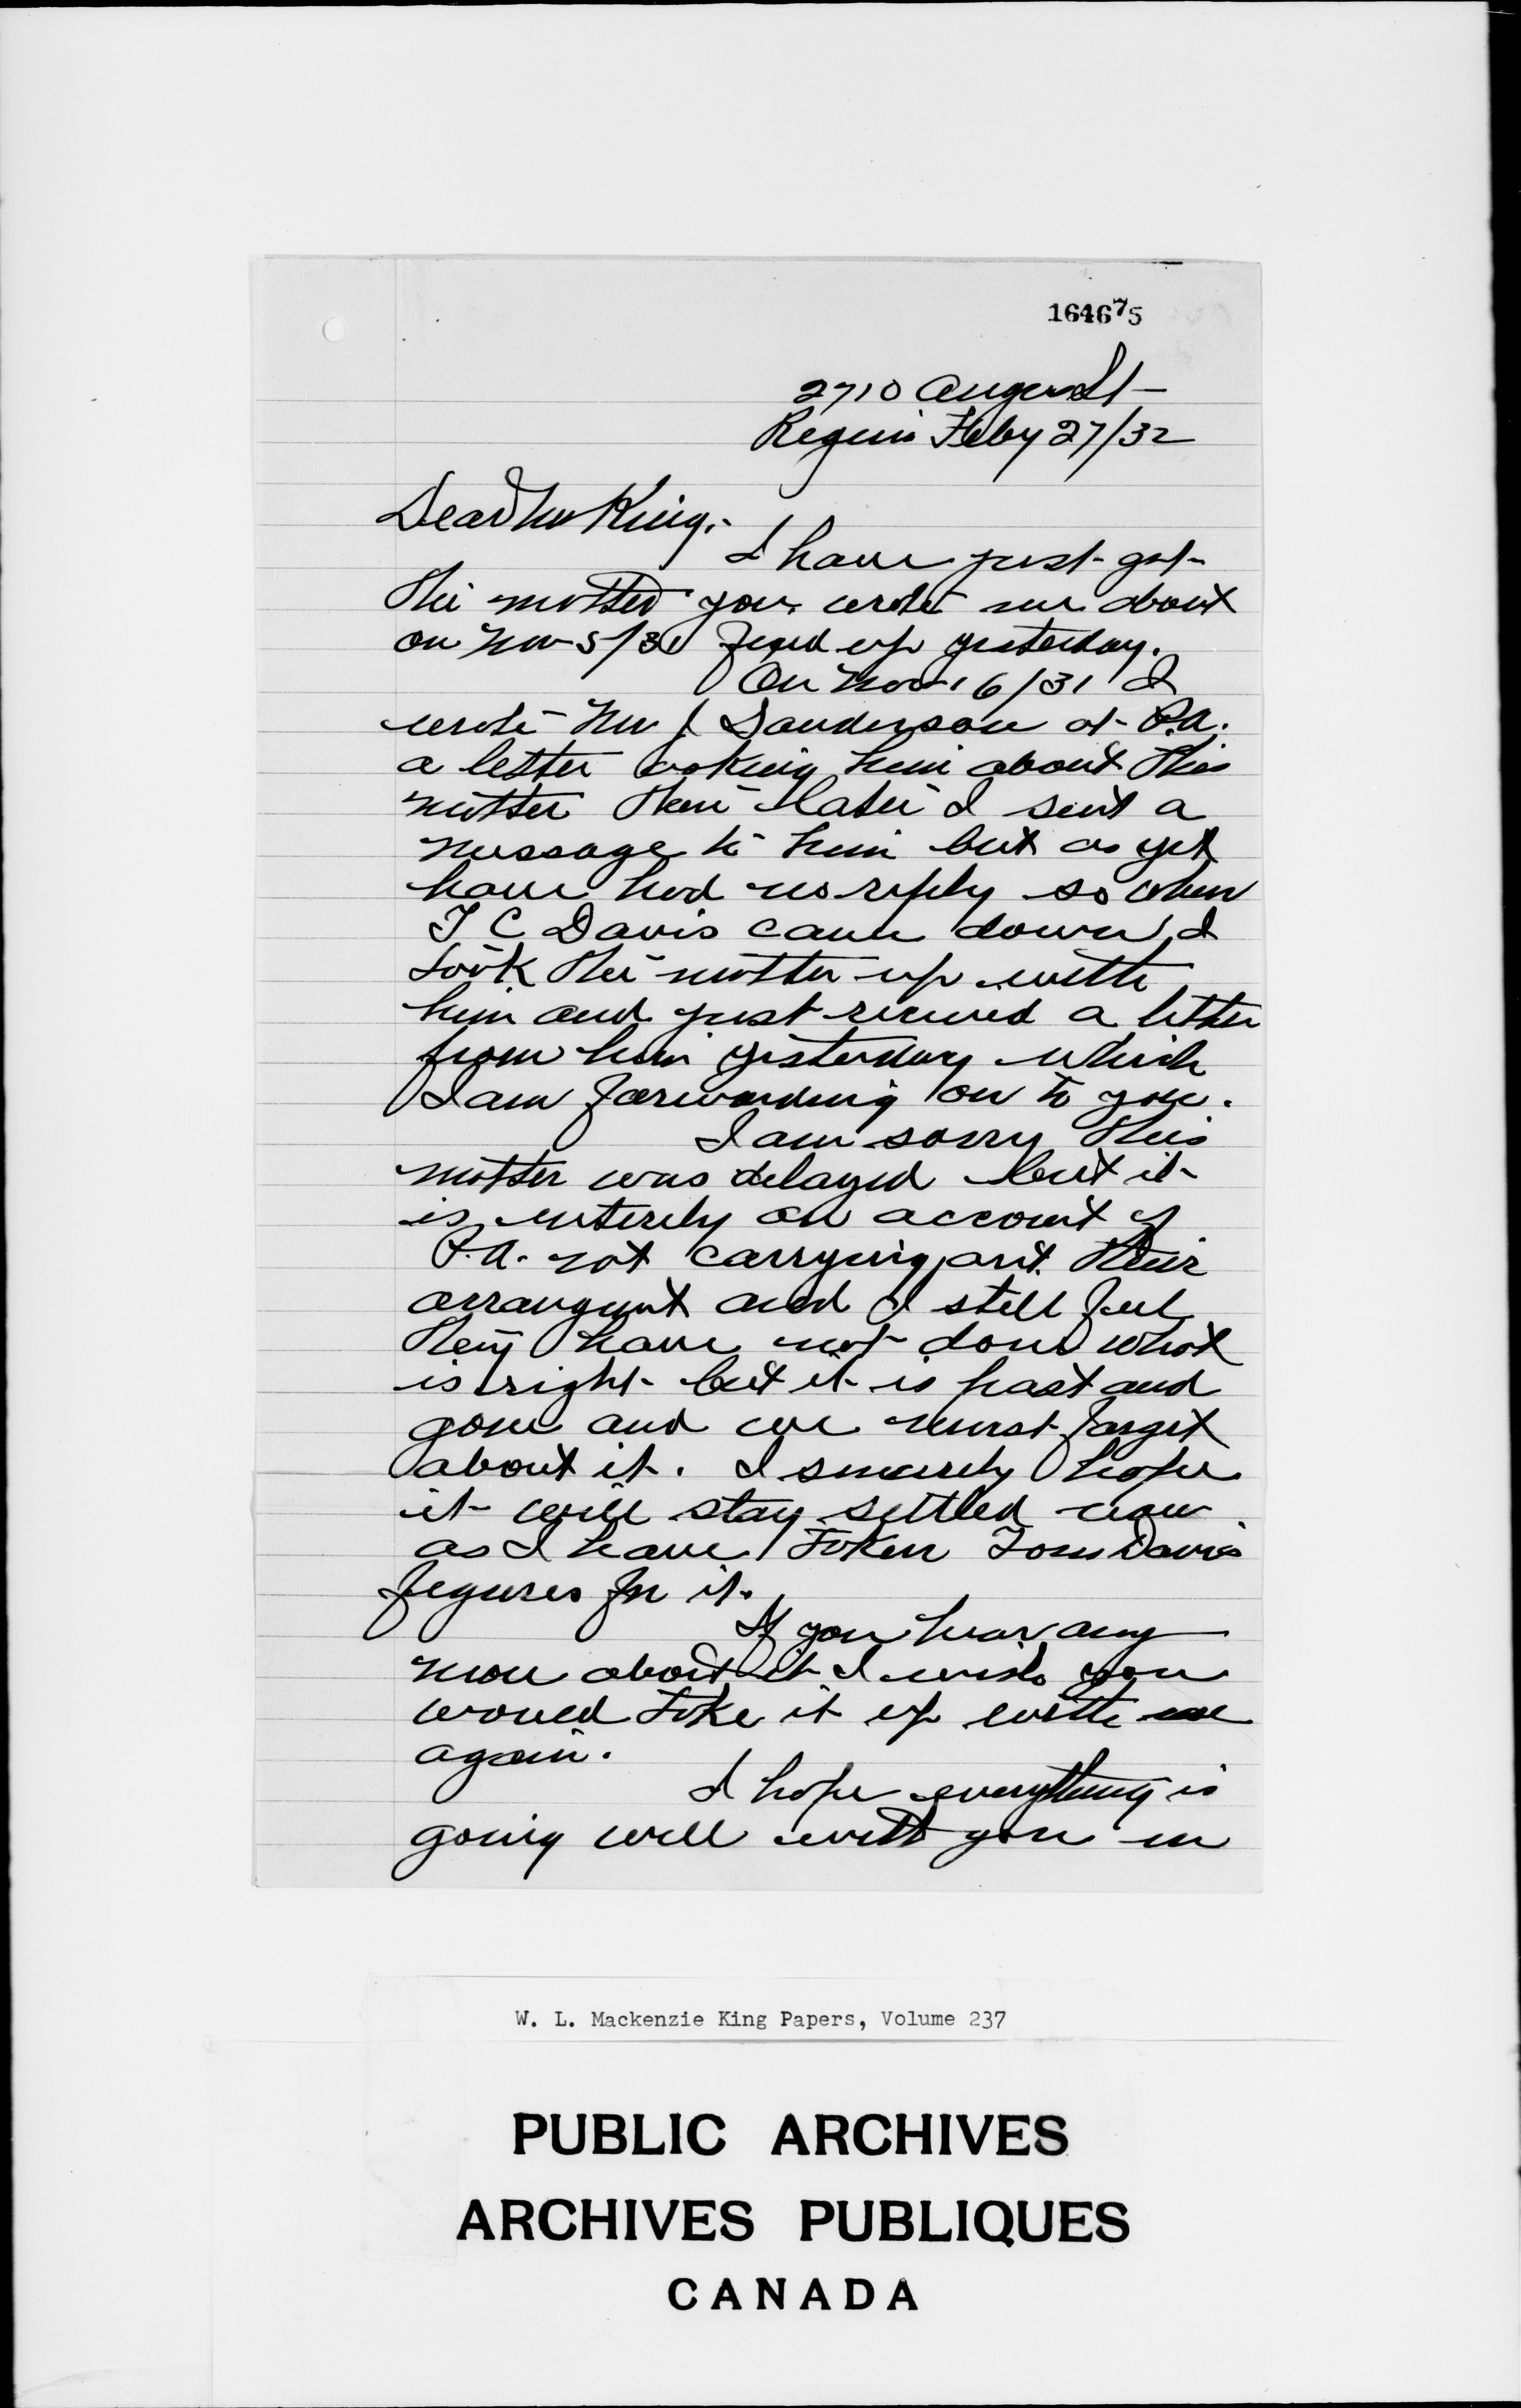 164675
2710 Angus St
Regina Feby 27/32
Dear Mr King,
I have just got
the matter you wrote me about
on Nov 5/31 fixed up yesterday.
On Nov 16/31 I
wrote Mr J Sanderson at P.A.
a letter asking him about this
matter then later I sent a
message to him but as yet
have had no reply so when
T C Davis came down I
took the matter up with
him and just received a letter
from him yesterday which
I am forwarding on to you.
I am sorry this
matter was delayed but it
is entirely on account of
P.A. not carrying out their
arrangment and I still feel
they have not done what
is right but it is past and
gone and we must forget
about it. I sincerely hope
it will stay settled now
as I have taken Tom Davis
figures for it.
If you hear any
more about it I wish you
would take it up with me
again.
I hope everything is
going well with you in
W. L. Mackenzie King Papers, Volume 237
PUBLIC ARCHIVES
ARCHIVES PUBLIQUES
CANADA